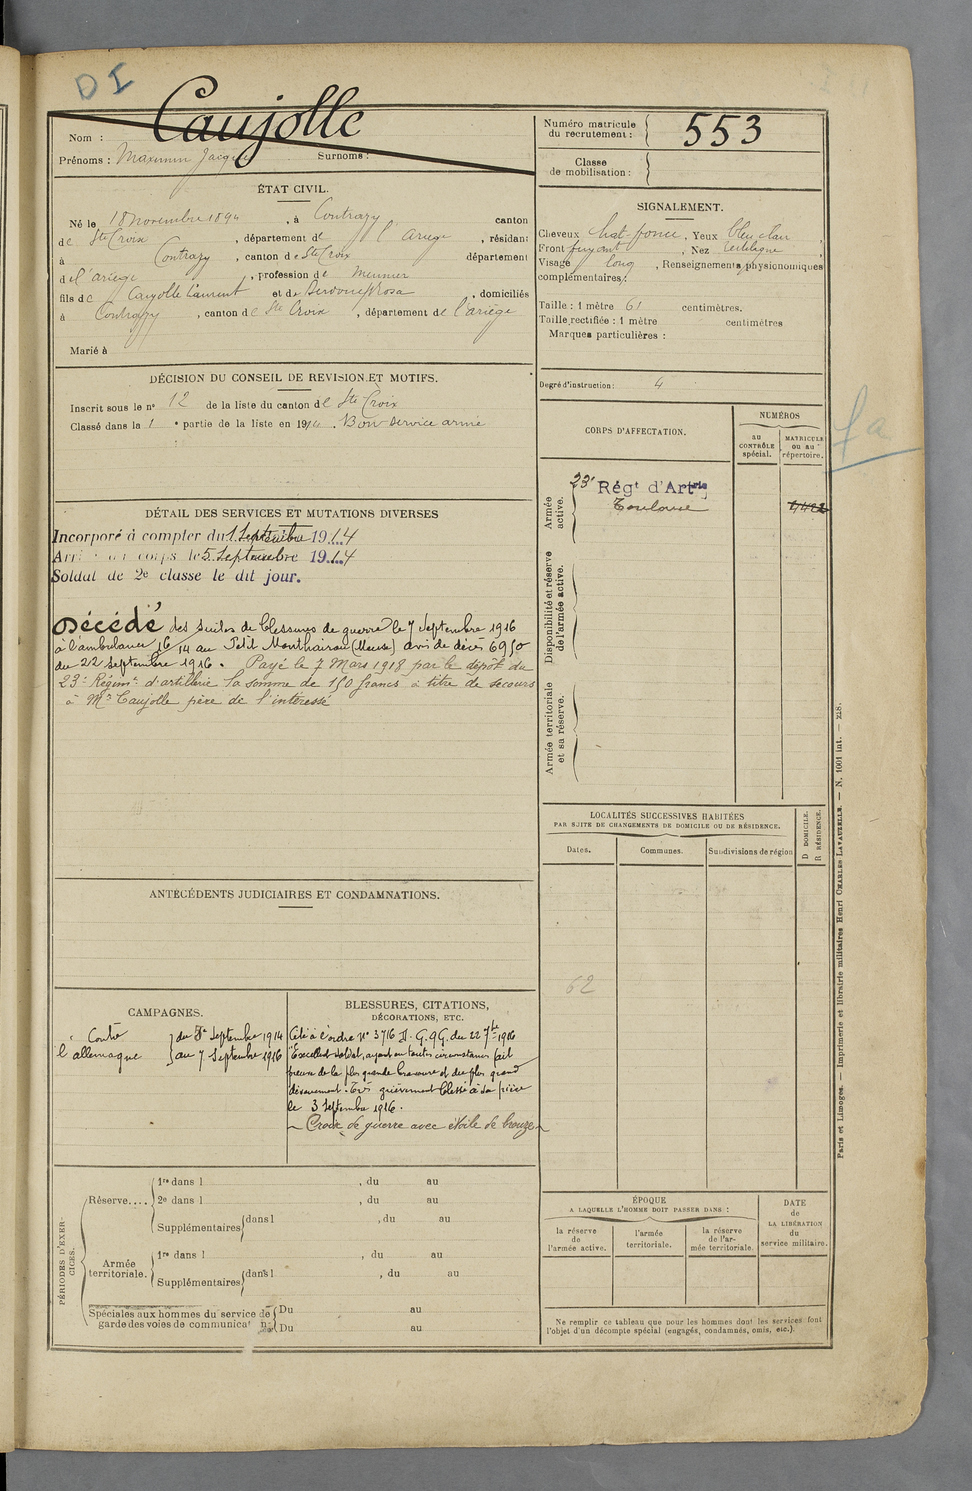 DI
Nom : Caujolle
Prénoms : Maximin Jacques Surnoms :
Numéro matricule du recrutement : 553
Classe de mobilisation :
ÉTAT CIVIL.
Né le 18 novembre 1894, à Contrazy canton
de Ste Croix, département de l'Ariège, résidant
à Contrazy, canton de Ste Croix département
de l'ariège, profession de meunier
fils de Caujolle Laurent et de Rosa, domiciliés
à Contrazy, canton de Ste Croix, département de l'ariège
Marié à
SIGNALEMENT.
Cheveux chat-foncé, Yeux bleu clair,
Front fuyant, Nez rectiligne
Visage long, Renseignements physionomiques
complémentaires :
Taille : 1 mètre 61 centimètres.
Taille rectifiée : 1 mètre centimètres
Marques particulières :
Degré d'instruction : 4
DÉCISION DU CONSEIL DE REVISION ET MOTIFS.
Inscrit sous le no 12 de la liste du canton de Ste Croix
Classé dans la 1e partie de la liste en 1914. Bon service armé
CORPS D'AFFECTATION.
NUMÉROS
AU CONTRÔLE spécial.
MATRICULE ou au répertoire.
Armée active.
23e Régt d'Artrie
Toulouse
fa
Disponibilité et réserve de l'armée active.
Armée territoriale et sa réserve.
DÉTAIL DES SERVICES ET MUTATIONS DIVERSES
Incorporé à compter du 1 Septembre 1914
Arrivé au corps le 5 Septembre 1914
Soldat de 2e classe le dit jour.
Décédé des suites de blessures de guerre le 7 septembre 1916
à l'ambulance 16/14 au Petit Monthairon (Meuse) avis de décès 6950
du 22 septembre 1916. Payé le 7 Mars 1918 par le dépôt du
23e Régimt d'artillerie la somme de 150 francs à titre de secours
à Mr Caujolle père de l'intéressé
LOCALITÉS SUCCESSIVES HABITÉES
PAR SUITE DE CHANGEMENTS DE DOMICILE OU DE RÉSIDENCE.
Dates.
Communes.
Subdivisions de région
D DOMICILE.
R RÉSIDENCE.
62
ANTÉCÉDENTS JUDICIAIRES ET CONDAMNATIONS.
CAMPAGNES.
Contre l'allemagne
du 5 Septembre 1914
au 7 Septembre 1916
BLESSURES, CITATIONS,
DÉCORATIONS, ETC.
Cité à l'ordre No 3716 D. G.Q.G. du 22 7bre 1916
"Excellent soldat, ayant en toutes circonstances fait
preuve de la plus grande bravoure et du plus grand
dévouement. Très grièvement blessé à sa pièce
le 3 septembre 1916.
Croix de guerre avec étoile de bronze
PÉRIODES D'EXERCICES.
Réserve....
1re dans l , du au
2e dans l , du au
Supplémentaires dans l , du au
Armée territoriale.
1re dans l , du au
Supplémentaires dans l , du au
Spéciales aux hommes du service de
garde des voies de communication
Du au
Du au
ÉPOQUE
A LAQUELLE L'HOMME DOIT PASSER DANS :
la réserve de l'armée active.
l'armée territoriale.
la réserve de l'armée territoriale.
DATE de LA LIBÉRATION du service militaire.
Ne remplir ce tableau que pour les hommes dont les services font
l'objet d'un décompte spécial (engagés, condamnés, omis, etc.).
Paris et Limoges. — Imprimerie et librairie militaires Henri CHARLES LAVAUZELLE. — N. 1001 int. — 218.